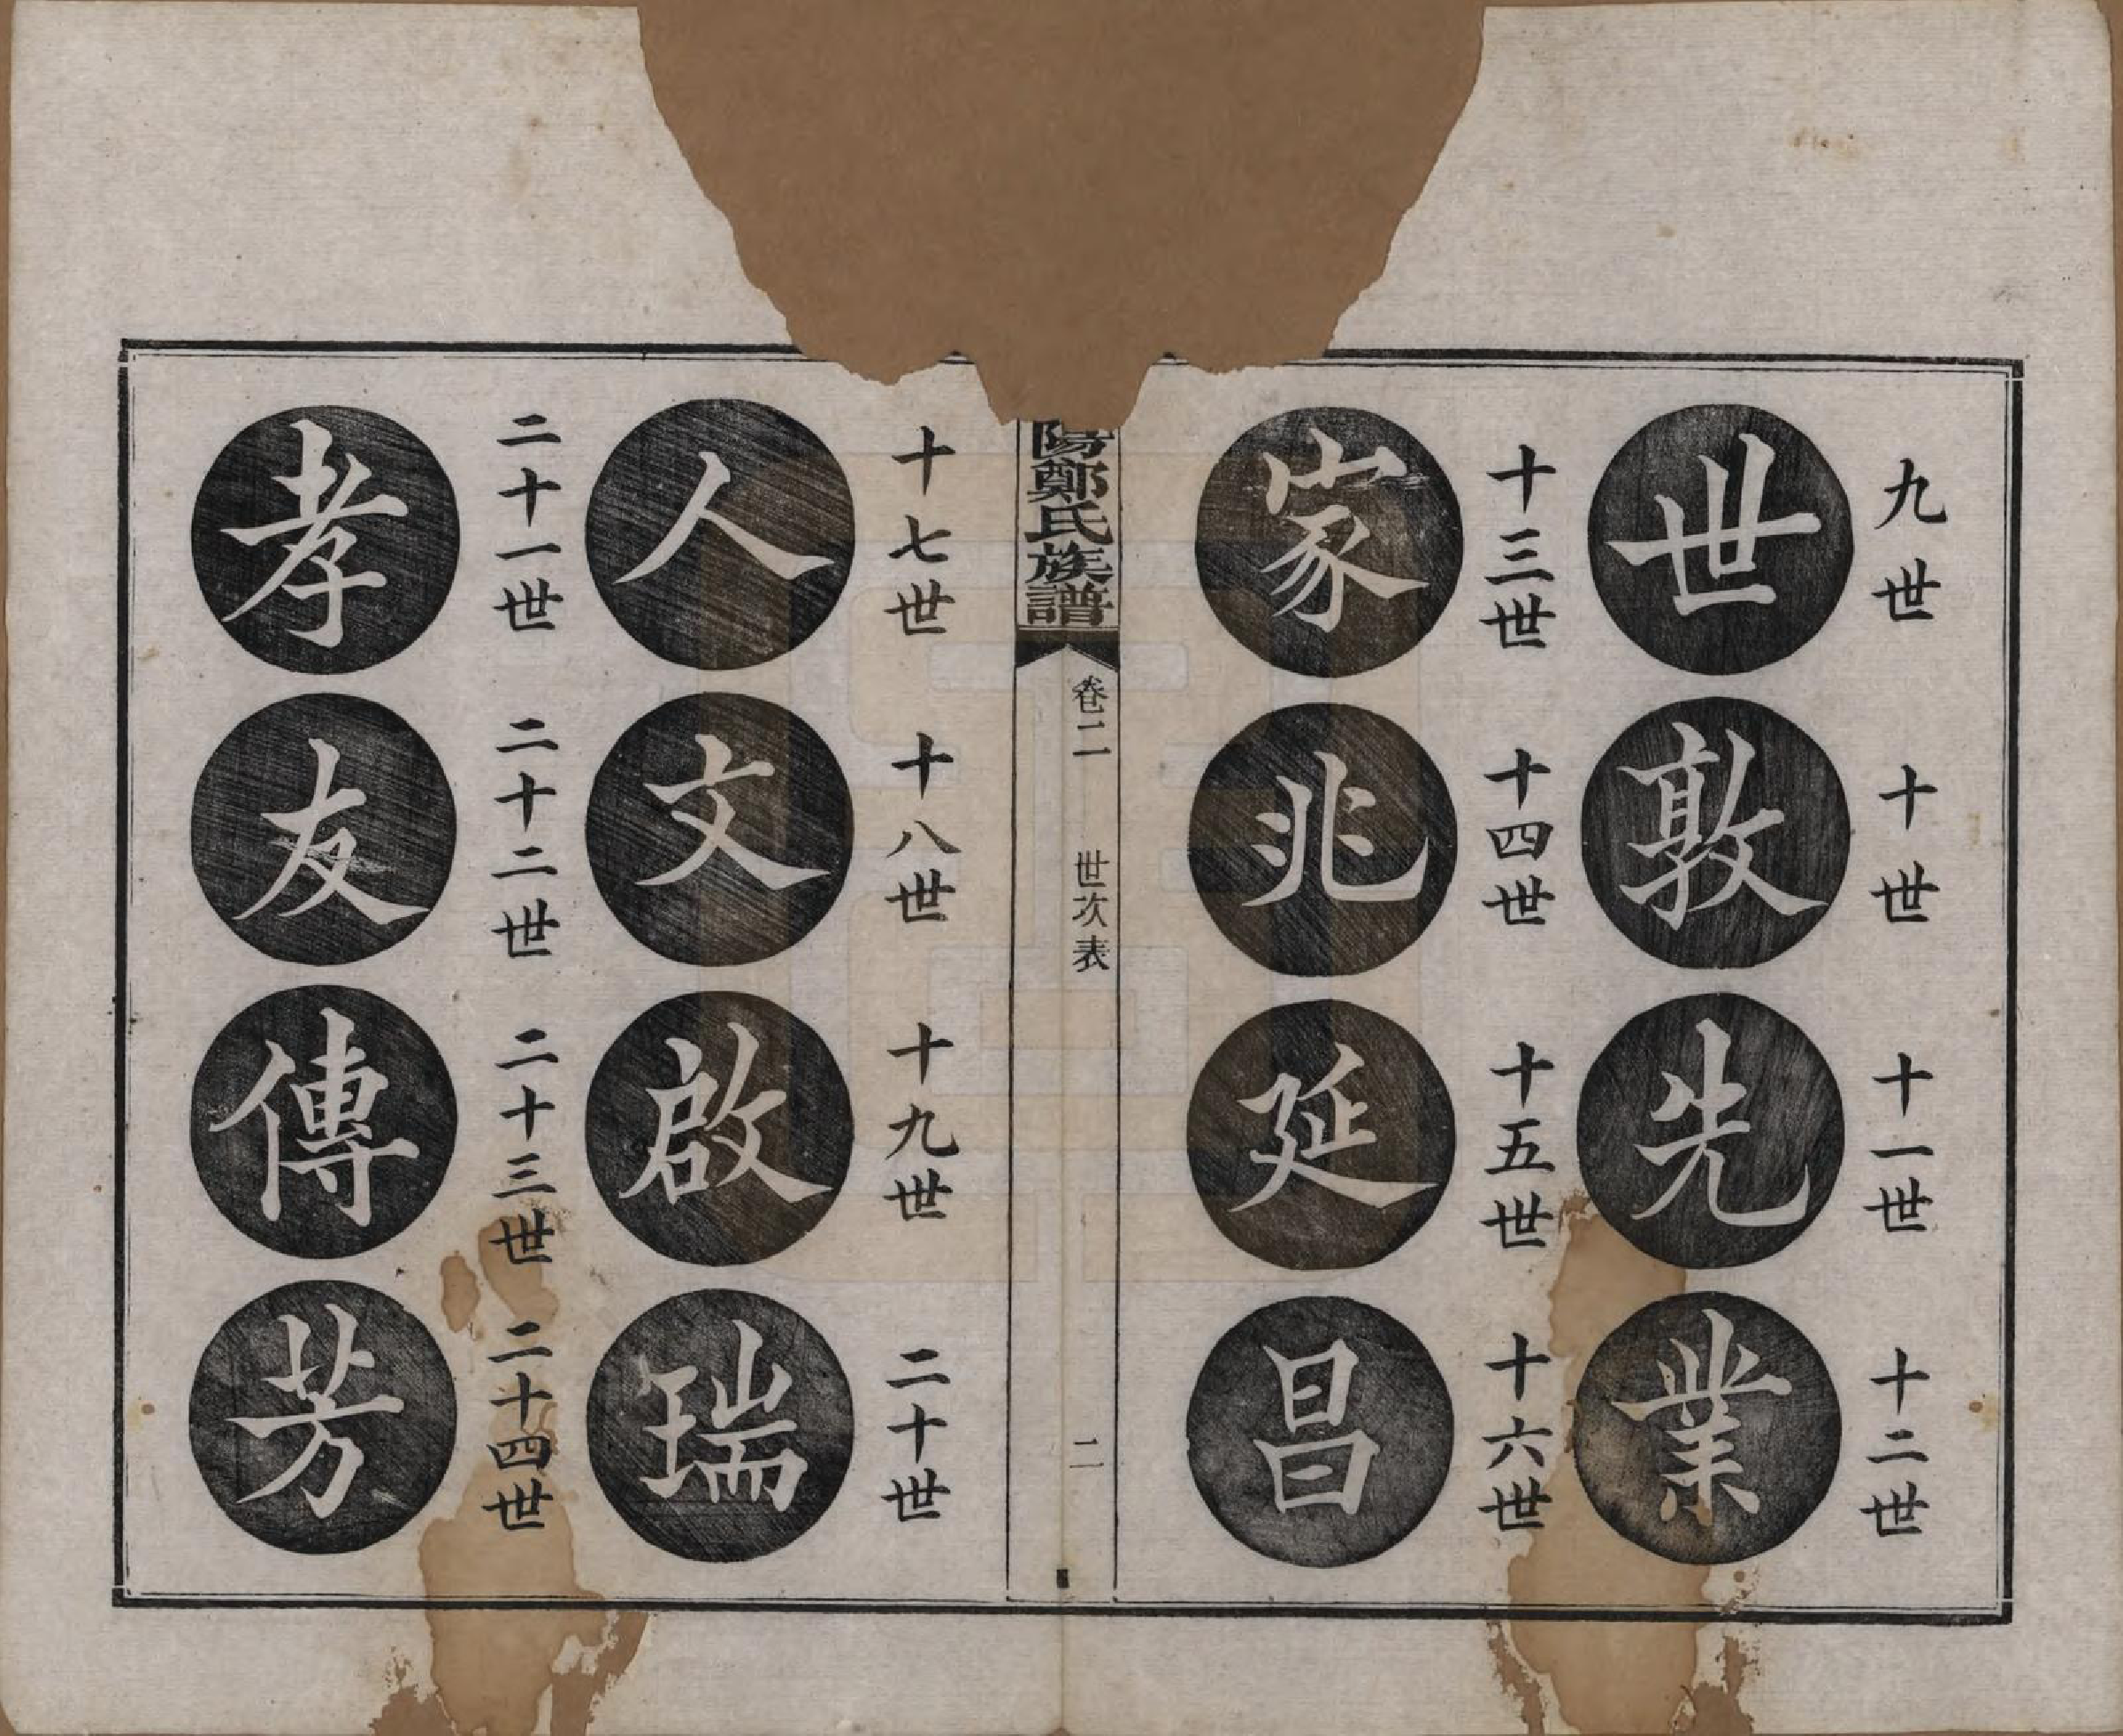 九世 十世 十一世 十二世
世敦先業
十三世 十四世 十五世 十六世
家兆延昌
陽鄭氏族譜 卷二 世次表 二
十七世 十八世 十九世 二十世
人文啟瑞
二十一世 二十二世 二十三世 二十四世
孝友傳芳